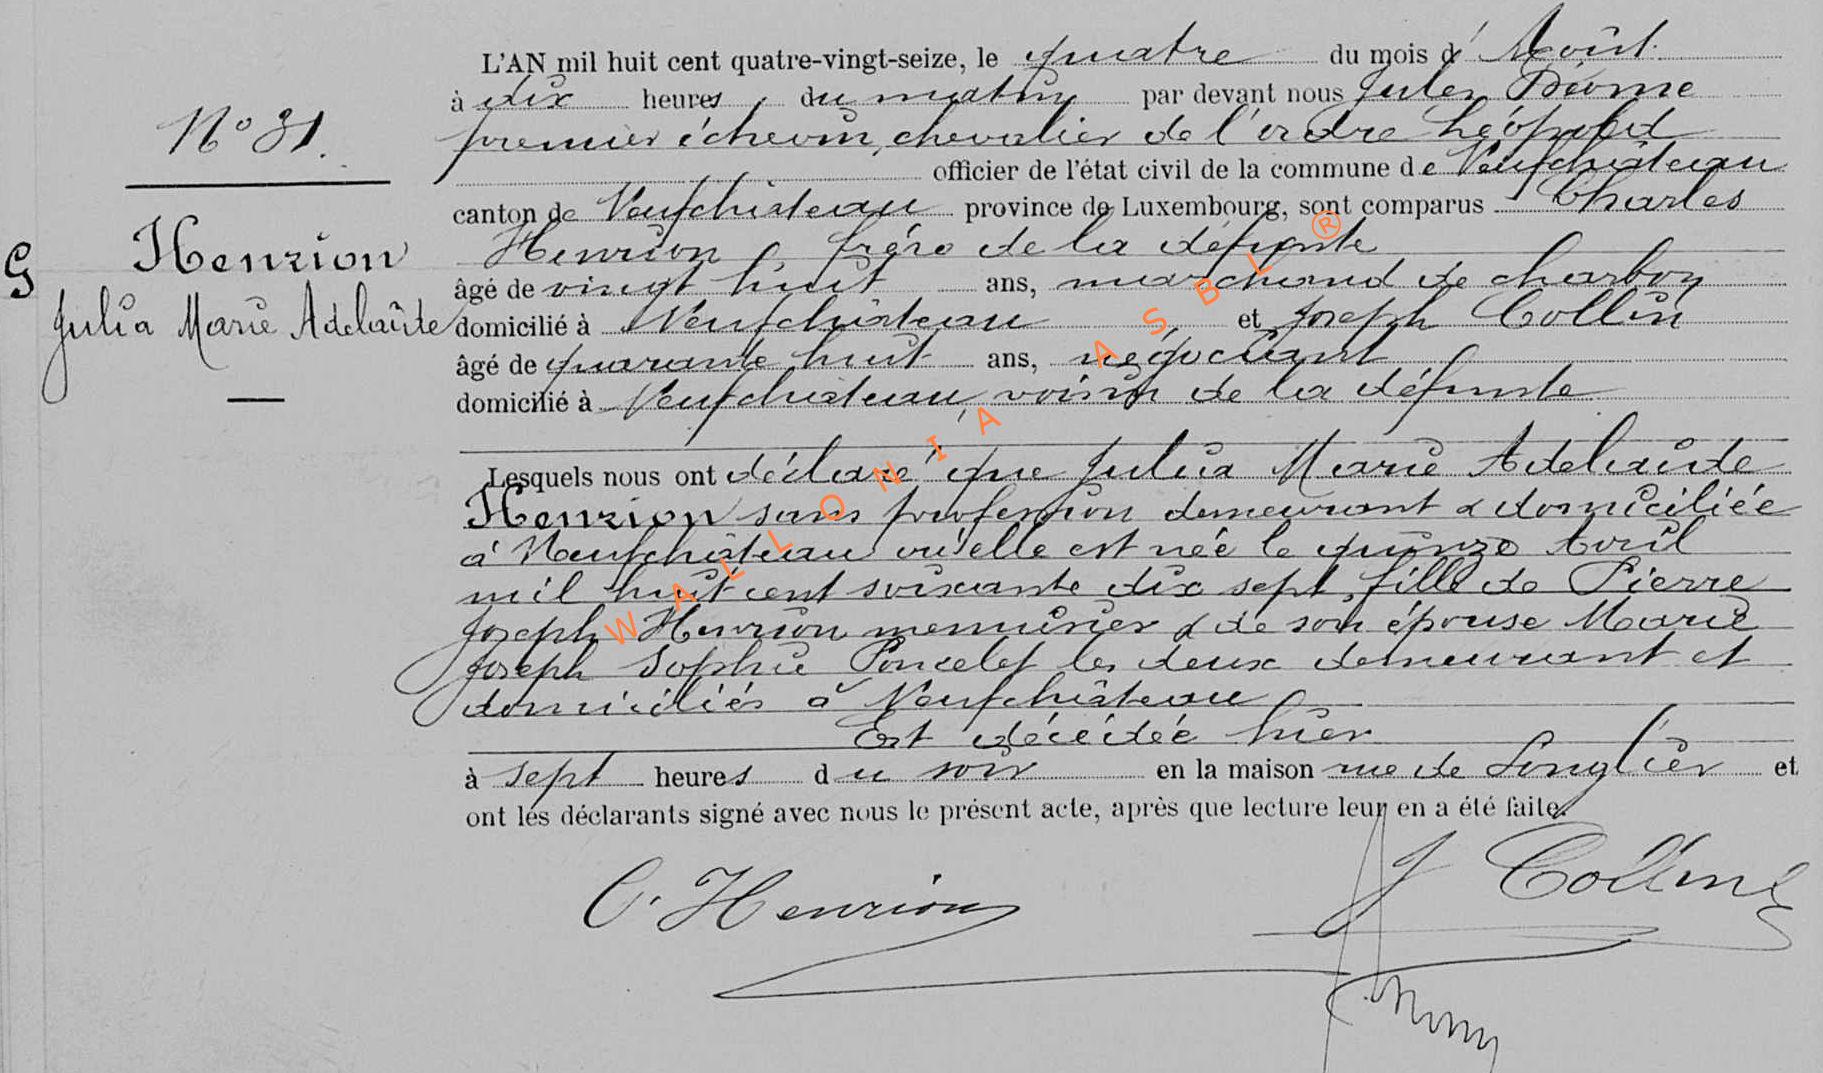 N° 31.
G
Henrion
Julia Marie Adelaïde
L'AN mil huit cent quatre-vingt-seize, le quatre du mois d' Août
à dix heures du matin par devant nous Jules
premier échevin, chevalier de l'ordre Léopold
officier de l'état civil de la commune de Neufchâteau
canton de Neufchâteau province de Luxembourg, sont comparus Charles
Henrion, frère de la défunte
âgé de vingt huit ans, marchand de charbon
domicilié à Neufchâteau et Joseph Collin
âgé de quarante huit ans, négociant
domicilié à Neufchâteau, voisin de la défunte
Lesquels nous ont déclaré que Julia Marie Adelaïde
Henrion sans profession demeurant & domiciliée
à Neufchâteau où elle est née le quinze Avril
mil huit cent soixante dix sept, fille de Pierre
Joseph Henrion menuisier & de son épouse Marie
Joseph Sophie Poncelet les deux demeurant et
domiciliés à Neufchâteau
Est décédée hier
à sept heures du soir en la maison rue de Longlier et
ont les déclarants signé avec nous le présent acte, après que lecture leur en a été faite.
C. Henrion
J Collin
WALLONIA ASBL ®